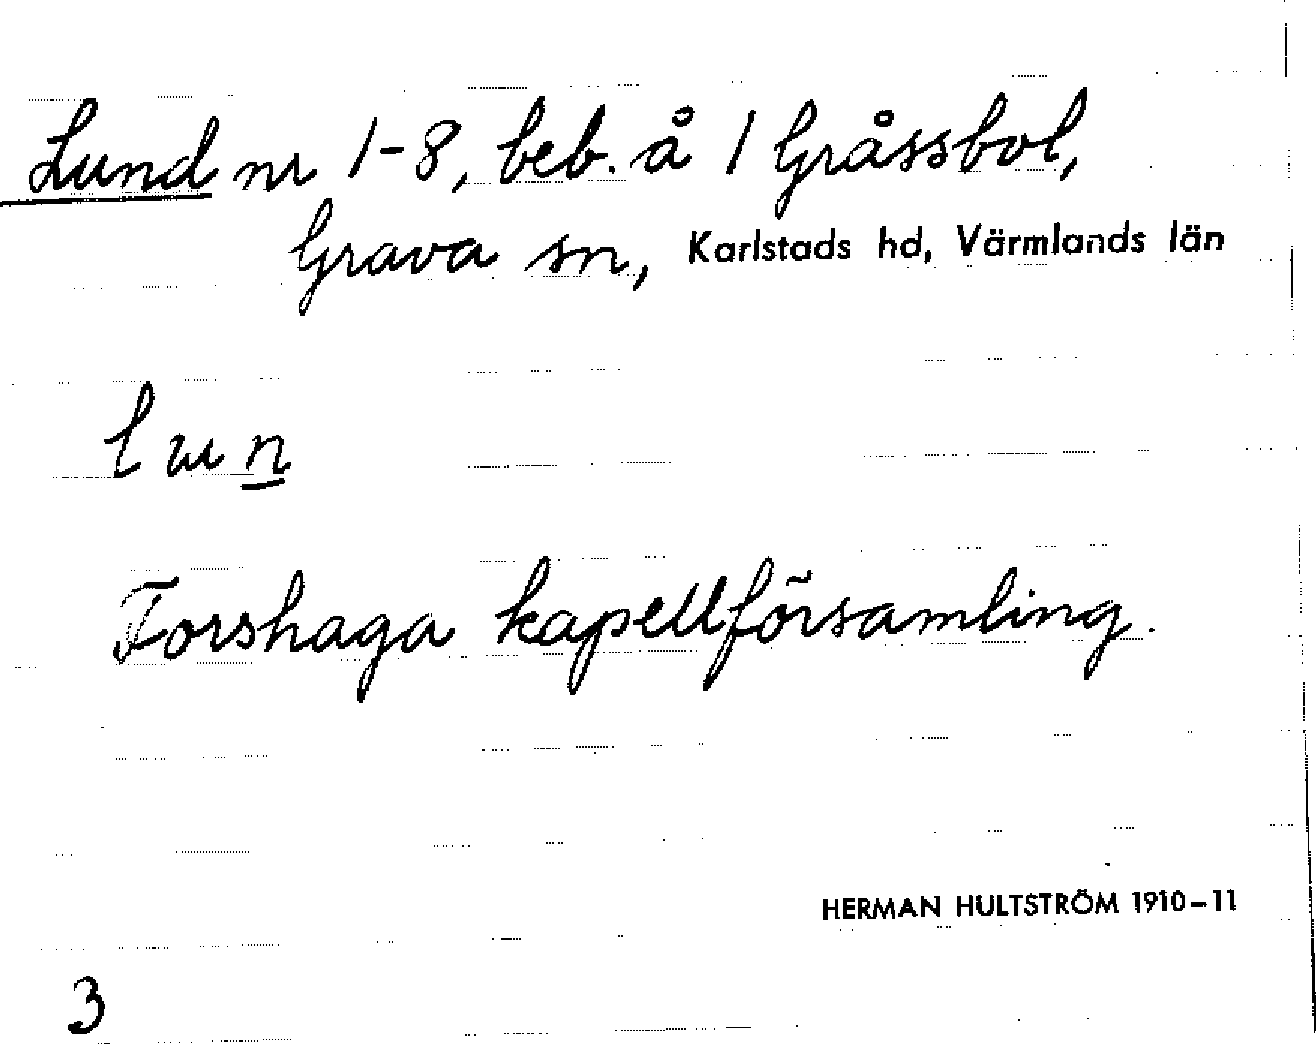 Lund nr 1-8, beb. å 1 Gråssbol,
Grava sn, Karlstads hd, Värmlands län
Forshaga kapellförsamling.
HERMAN HULTSTRÖM 1910-11
3